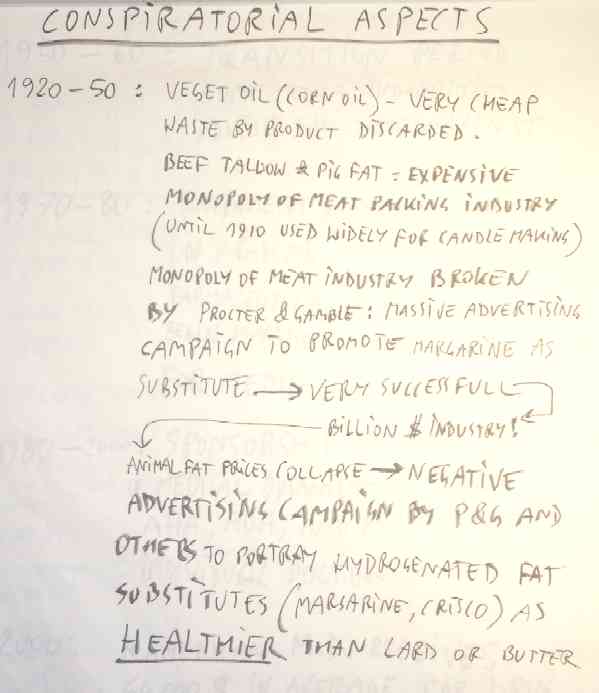 CONSPIRATORIAL ASPECTS
1920-50 : VEGET OIL (CORN OIL) - VERY CHEAP
WASTE BY PRODUCT DISCARDED.
BEEF TALLOW & PIG FAT = EXPENSIVE
MONOPOLY OF MEAT PACKING INDUSTRY
(UNTIL 1910 USED WIDELY FOR CANDLE MAKING)
MONOPOLY OF MEAT INDUSTRY BROKEN
BY PROCTER & GAMBLE : MASSIVE ADVERTISING
CAMPAIGN TO PROMOTE MARGARINE AS
SUBSTITUTE → VERY SUCCESSFULL
BILLION $ INDUSTRY!
ANIMAL FAT PRICES COLLAPSE → NEGATIVE
ADVERTISING CAMPAIGN BY P&G AND
OTHERS TO PORTRAY HYDROGENATED FAT
SUBSTITUTES (MARGARINE, CRISCO) AS
HEALTHIER THAN LARD OR BUTTER